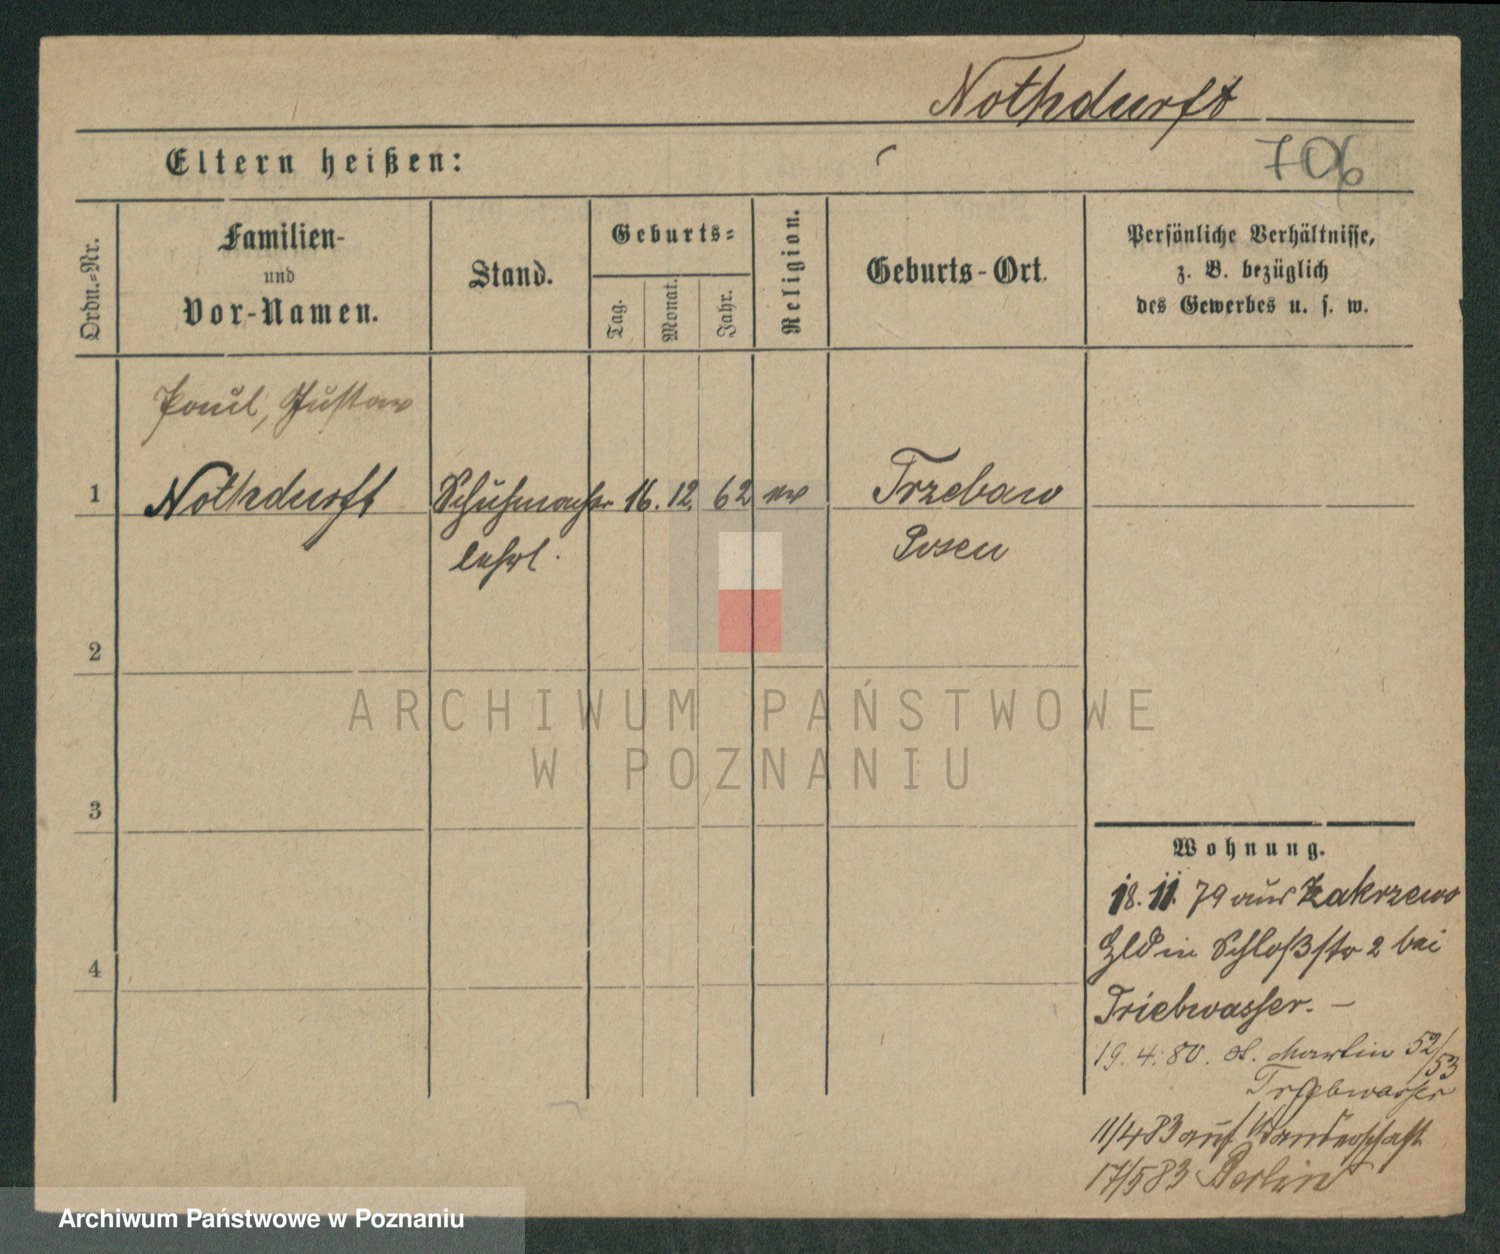 Nothdurft
706
Eltern heißen:
Ordn.-Nr.
Familien-
und
Vor-Namen.
Stand.
Geburts-
Tag.
Monat.
Jahr.
Religion.
Geburts-Ort.
Persönliche Verhältnisse,
z. B. bezüglich
des Gewerbes u. s. w.
Paul, Gustav
1 Nothdurft Schuhmacher 16. 12. 62 ev Trzebaw
lehrl. Posen
2
3
4
ARCHIWUM PAŃSTWOWE
W POZNANIU
Wohnung.
18. 11. 79 aus Zakrzewo
in Schloßstr 2 bei
Triebwasser. –
19. 4. 80. St. Martin 52/53
Triebwasser
11/4 83 auf Wanderschaft
17/5 83 Berlin
Archiwum Państwowe w Poznaniu